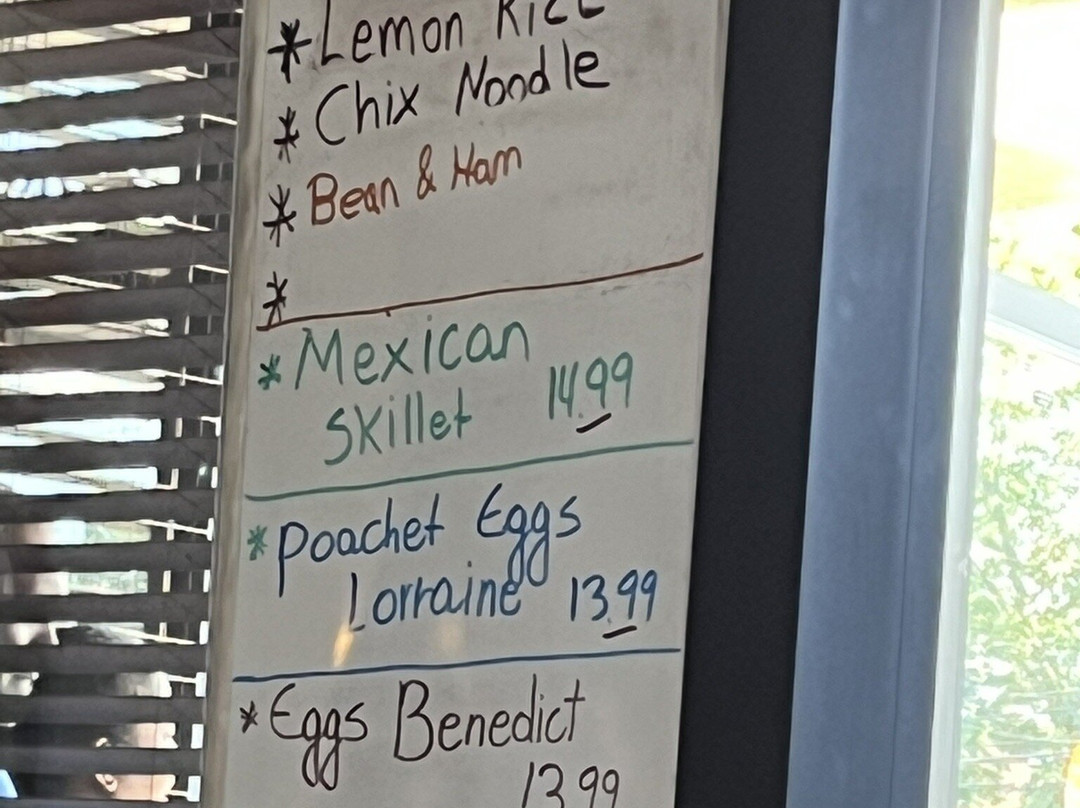 * Lemon Rice
* Chix Noodle
* Bean & Ham
*
* Mexican
Skillet 14.99
* Poachet Eggs
Lorraine 13.99
* Eggs Benedict
13.99